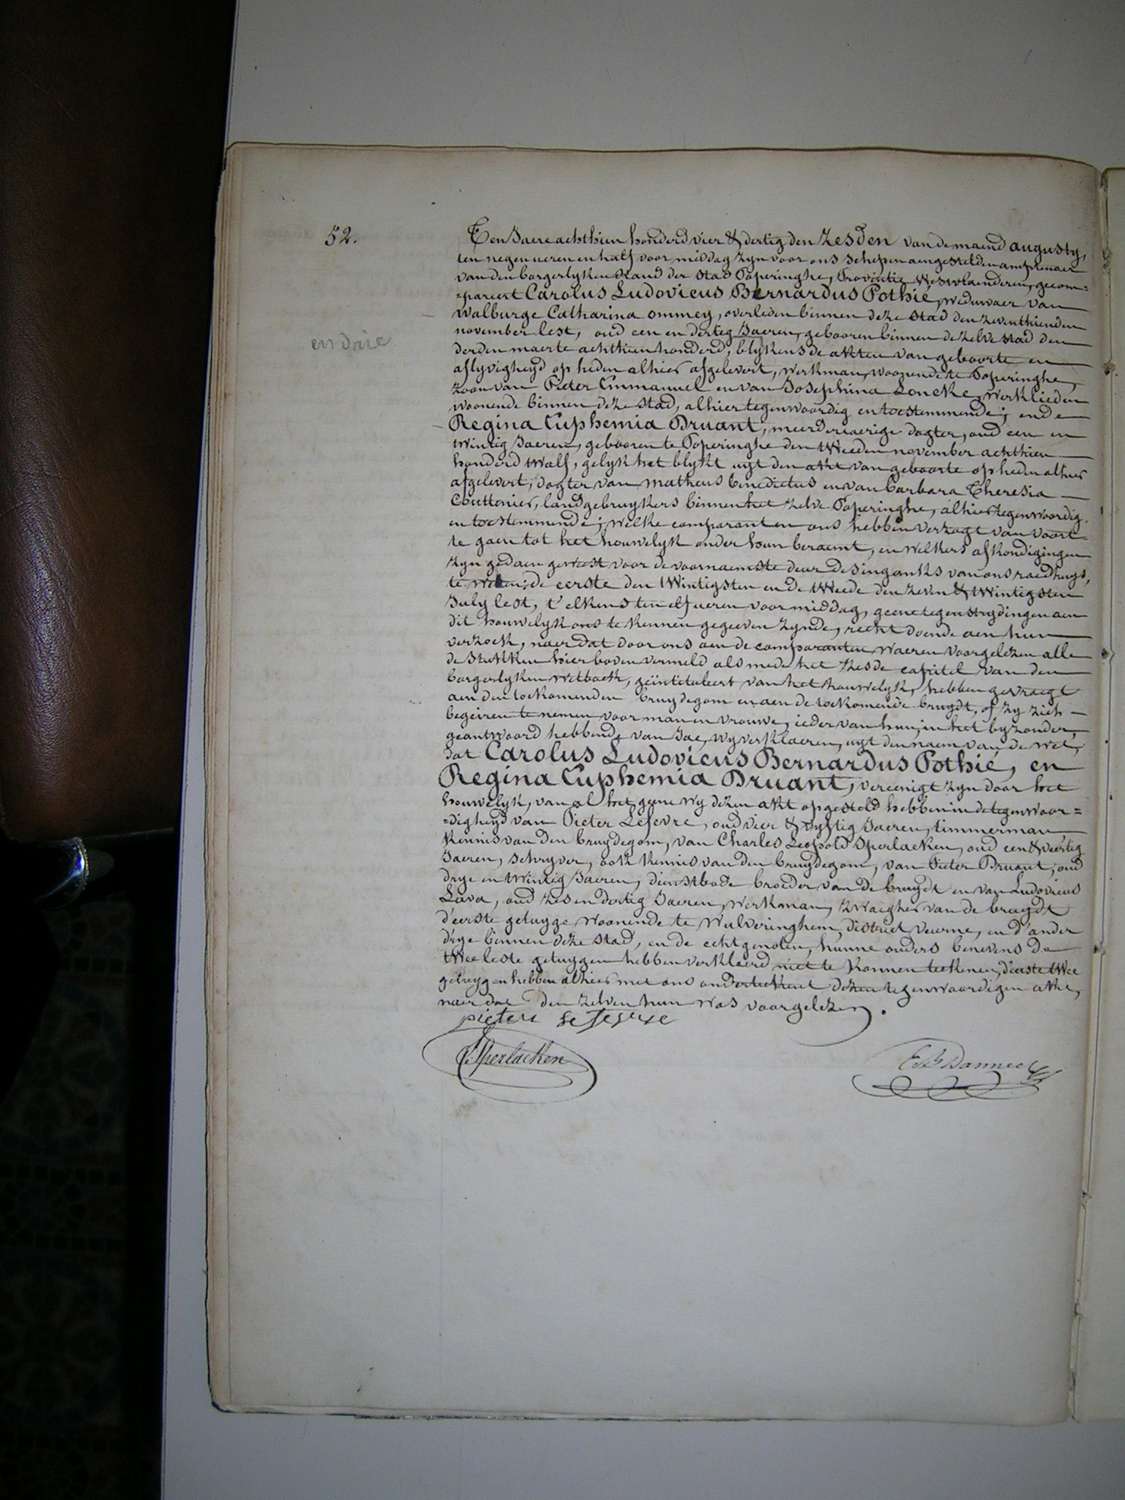 52.
Ten Jaere achthien honderd vier & dertig den zesden van de maend augusty,
ten negen ueren en half voor middag zyn voor ons schepen aengestelden amptenaer
van den borgerlyken stand der stad Poperinghe, Provintie Westvlaenderen, gecom=
=pareert Carolus Ludovicus Bernardus Pothié, weduwaer van
Walburge Catharina Ommey, overleden binnen deze stad den zeventhienden
november lest, oud een en dertig Jaeren, gebooren binnen de zelve stad den
en daie
derden maerte achthien honderd, blykens de akten van geboorte en
aflyvigheyd op heden alhier afgelevert, werkman, woonende te Poperinghe,
zoon van Pieter Emmanuel en van Josephina Loncke, werklieden
woonende binnen deze stad, alhier tegenwoordig en toestemmende; ende
Regina Euphemia Druant, meerderjaerige dogter, oud een en
twintig Jaeren, gebooren te Poperinghe den tweeden november achthien
honderd twalf, gelyk het blykt uyt den akt van geboorte op heden alhier
afgelevert, dogter van Matheus benedictus en van Barbara Theresia
Couttenier, landgebruykers binnen het zelve Poperinghe, alhier tegenwoordig
en toestemmende; welke comparanten ons hebben verzogt van voort
te gaen tot het houwelyk onder hun beraemt, en welkers afkondigingen
zyn gedaen geweest voor de voornaemste deur des inganks van ons raedhuys,
te weten; de eerste den twintigsten en de tweede den zeven & twintigsten
July lest, t'elkens ten elf ueren voor middag, geene tegenstrydingen aen
dit houwelyk ons te kennen gegeven zynde, recht doende aen hun
verzoek, naer dat door ons aen de comparanten waeren voorgelezen alle
de stukken hier boven vermeld als mede het zesde capitel van den
borgerlyken wetboek, geïntituleert van het houwelyk, hebben gevraegt
aen den toekomenden bruydegom en aen de toekomende bruydt, of zy zich
begeiren te nemen voor man en vrouwe, ieder van hun, in het byzonder,
geantwoord hebbende van Jae, wy verklaeren, uyt den naem van de wet,
dat Carolus Ludovicus Bernardus Pothié, en
Regina Euphemia Druant, vereenigt zyn door het
houwelyk, van al het geene wy dezen akt opgesteld hebben in de tegenwoor=
=digheyd van Pieter Lefevre, oud vier & vyftig Jaeren, timmerman
kennis van den bruydegom, van Charles Leopold Sperlaeken, oud een & veertig
Jaeren, schryver, ook kennis van den bruydegom, van Pieter Druant, oud
drye en twintig Jaeren, dienstbode broeder van de bruydt en van Ludovicus
Lava, oud zes en dertig Jaeren, werkman, zwaegher van de bruydt
d'eerste getuyge woonende te Wulveringhem, district veurne, en d'ander
drye binnen deze stad, en de echtgenoten, hunne ouders benevens de
twee leste getuygen hebben verkleerd niet te konnen teekenen, d'eerste twee
getuygen hebben alhier met ons onderteekent dezen tegenwoordigen akt,
naer dat den zelven hun was voorgelezen.
pieter le fevre
Sperlaeken